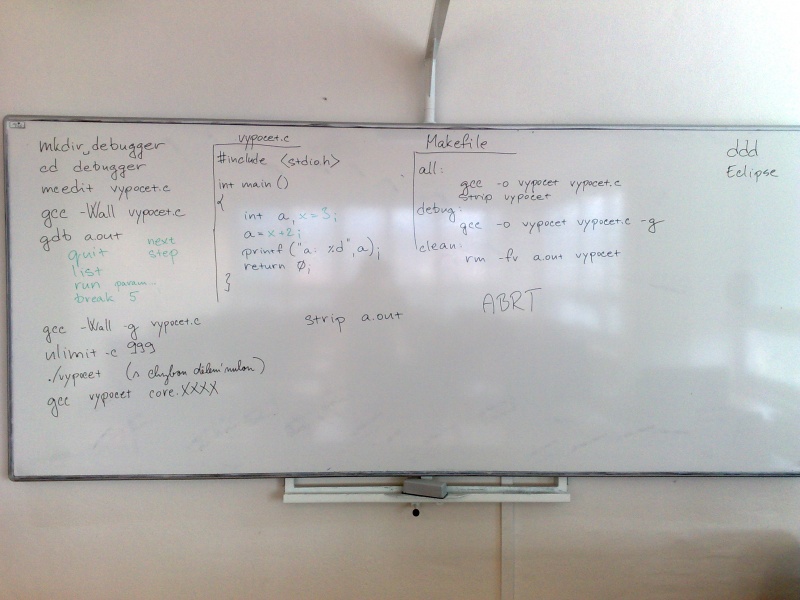 mkdir debugger
cd debugger
mcedit vypocet.c
gcc -Wall vypocet.c
gdb a.out
quit next
list step
run param...
break 5
gcc -Wall -g vypocet.c
ulimit -c 999
./vypocet (s chybou dělení nulou)
gcc vypocet core.XXXX
vypocet.c
#include <stdio.h>
int main ()
{
int a, x=3;
a=x+2;
printf ("a: %d",a);
return 0;
}
strip a.out
Makefile
all:
gcc -o vypocet vypocet.c
strip vypocet
debug:
gcc -o vypocet vypocet.c -g
clean:
rm -fv a.out vypocet
ABRT
ddd
Eclipse